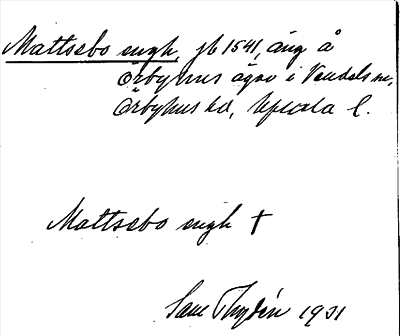 Mattsebo engh, jb 1541, äng å
Örbyhus ägor i Vendels sn,
Örbyhus hd, Upsala l.
Mattsebo engh †
1931